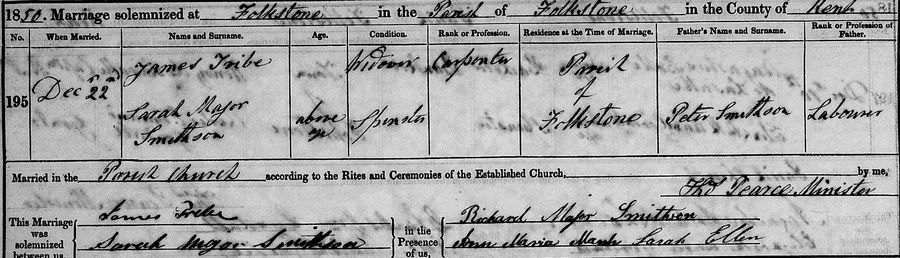 1850. Marriage solemnized at Folkstone in the Parish of Folkstone in the County of Kent
No. When Married. Name and Surname. Age. Condition. Rank or Profession. Residence at the Time of Marriage. Father's Name and Surname. Rank or Profession of Father.
195 Decr 22nd James Tribe Widower Carpenter Parish of Folkstone
Sarah Major Smithson above age Spinster Peter Smithson Labourer
Married in the Parish Church according to the Rites and Ceremonies of the Established Church, by me,
Thos Pearce Minister
This Marriage was solemnized between us, James Tribe in the Presence of us, Richard Major Smithson
Sarah Major Smithson Ann Maria Marsh Sarah Ellen